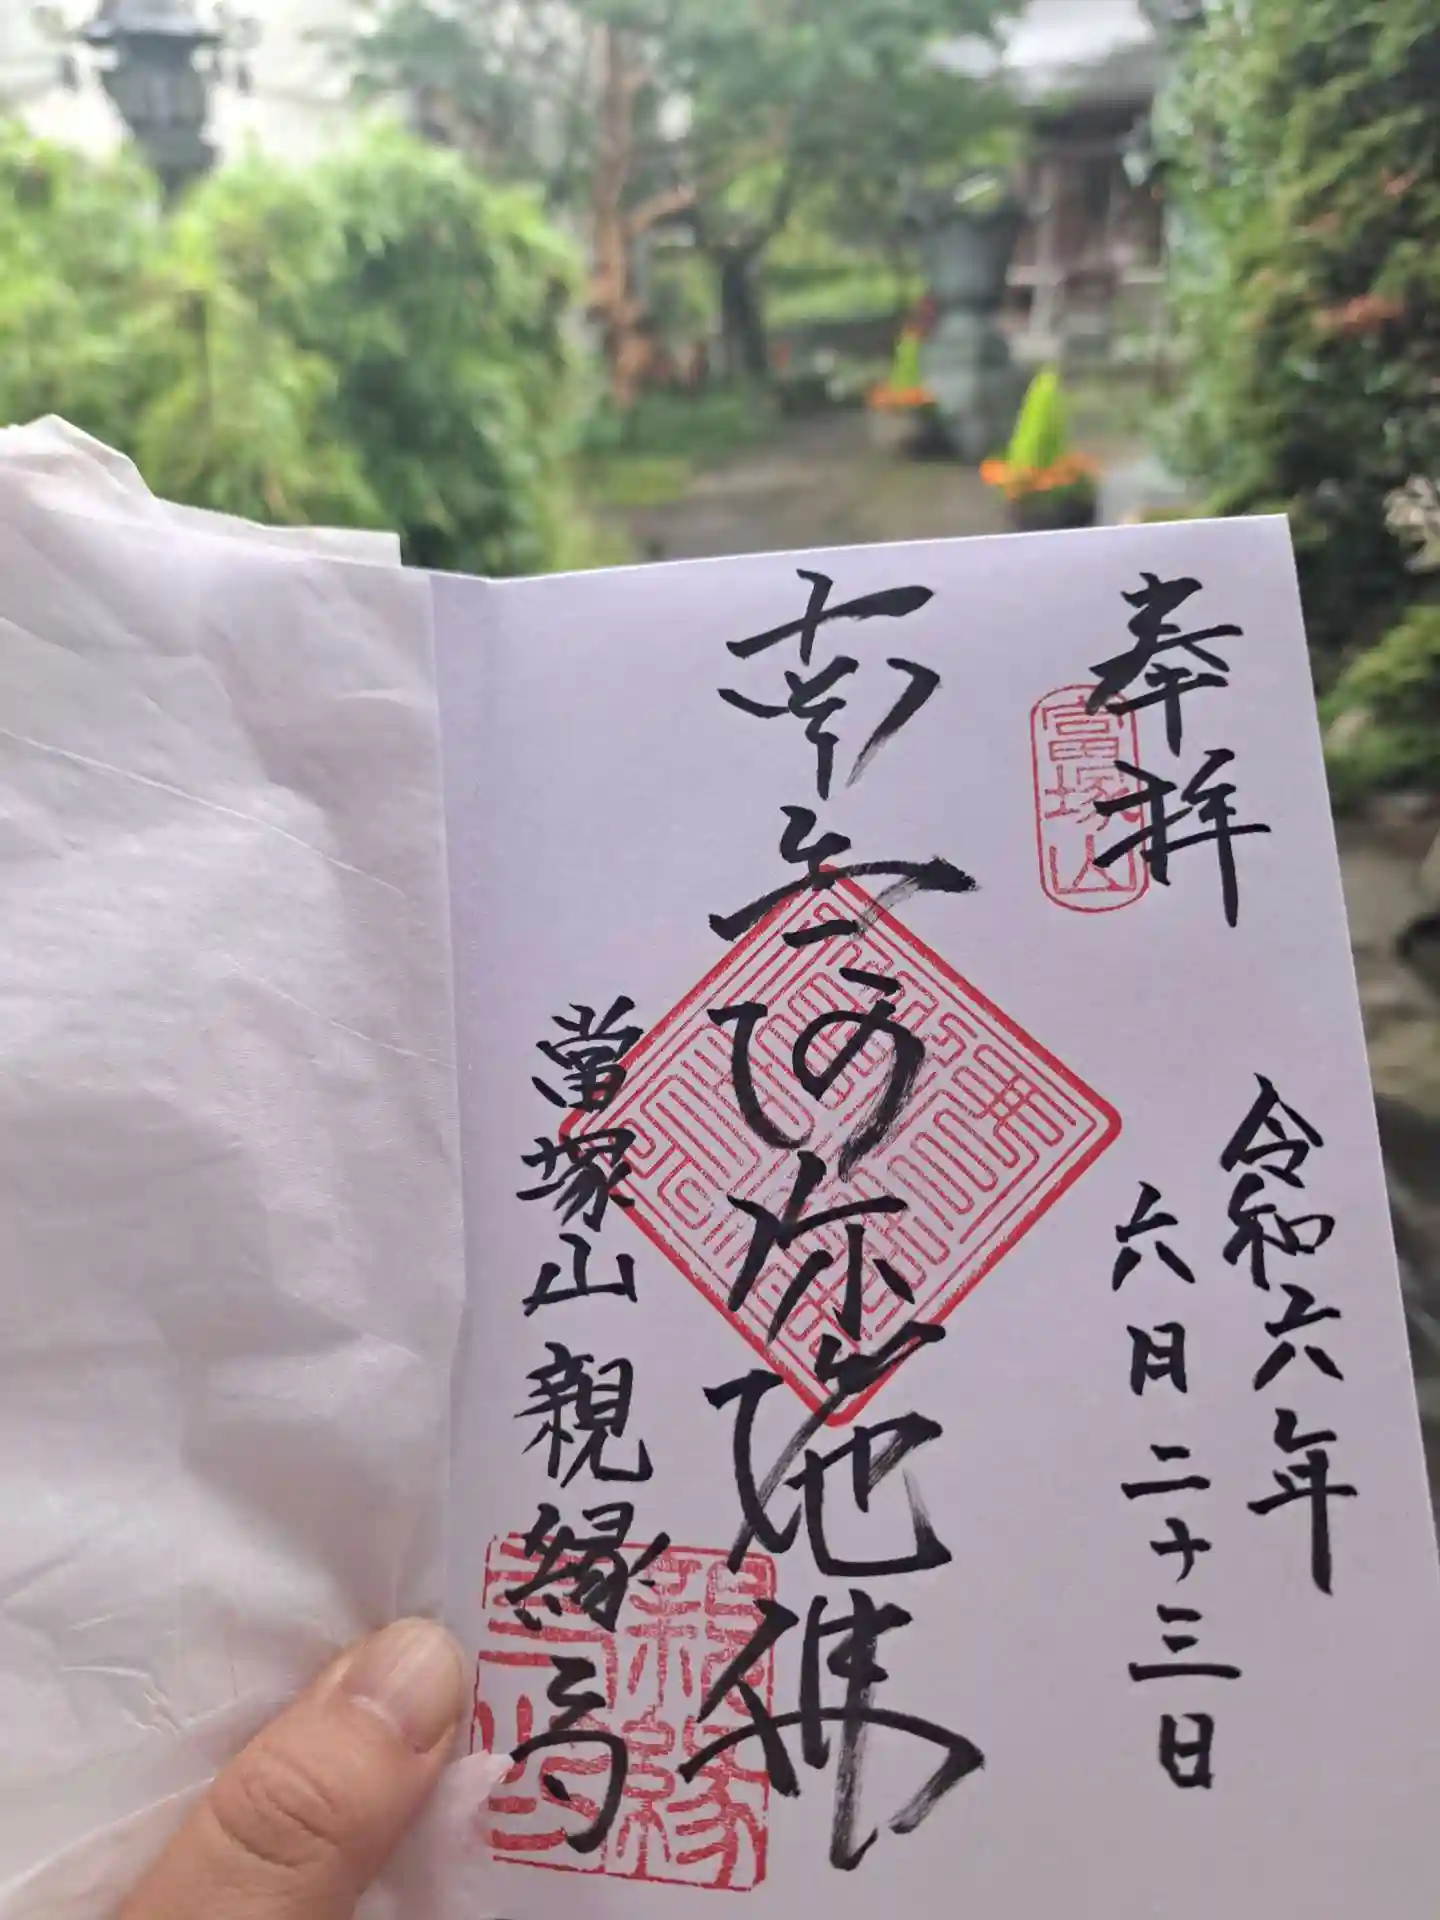 奉拝
富塚山
令和六年
六月二十三日
南無阿弥陀佛
富塚山親縁寺